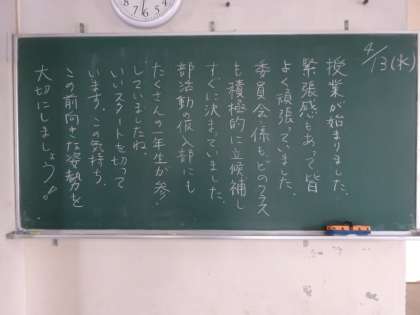 4/13(水)
授業が始まりました。
緊張感もあって皆
よく頑張っていました。
委員会や係もどのクラス
も積極的に立候補し
すぐに決まっていました。
部活動の仮入部にも
たくさんの一年生が参加
していましたね。
いいスタートを切って
います。この気持ち、
この前向きな姿勢を
大切にしましょう!